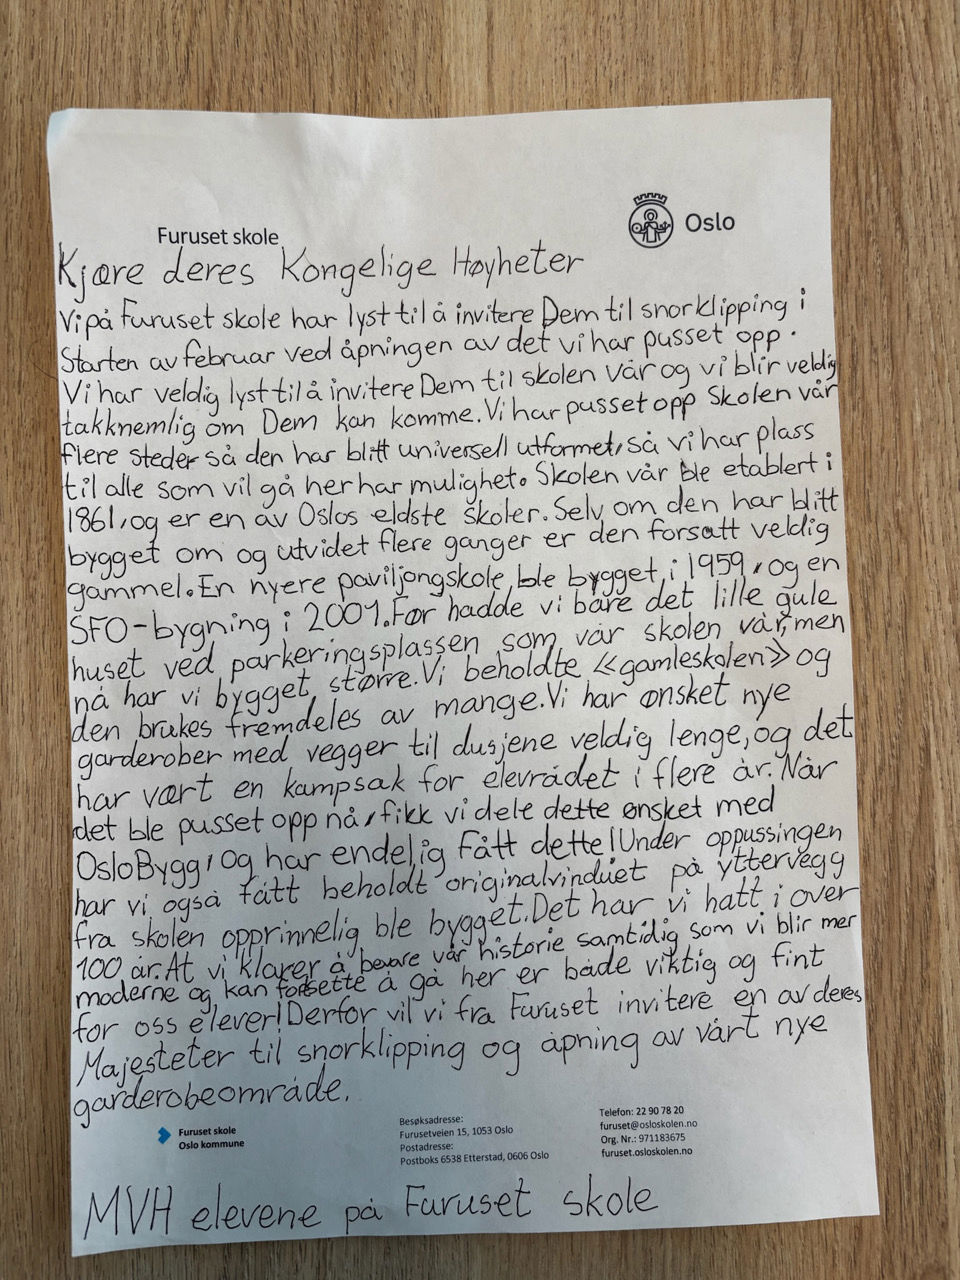 Furuset skole
Oslo
Kjære deres Kongelige Høyheter
Vi på Furuset skole har lyst til å invitere Dem til snorklipping i
Starten av februar ved åpningen av det vi har pusset opp.
Vi har veldig lyst til å invitere Dem til skolen vår og vi blir veldig
takknemlig om Dem kan komme. Vi har pusset opp Skolen vår
flere steder så den har blitt universell utformet, så vi har plass
til alle som vil gå her har mulighet. Skolen vår ble etablert i
1861, og er en av Oslos eldste skoler. Selv om den har blitt
bygget om og utvidet flere ganger er den forsatt veldig
gammel. En nyere paviljongskole ble bygget i 1959, og en
SFO-bygning i 2001. Før hadde vi bare det lille gule
huset ved parkeringsplassen som var skolen vår, men
nå har vi bygget større. Vi beholdte «gamleskolen» og
den brukes fremdeles av mange. Vi har ønsket nye
garderober med vegger til dusjene veldig lenge, og det
har vært en kampsak for elevrådet i flere år. Når
det ble pusset opp nå, fikk vi dele dette ønsket med
OsloBygg, og har endelig Fått dette! Under oppussingen
har vi også fått beholdt originalvinduet på yttervegg
fra skolen opprinnelig ble bygget. Det har vi hatt i over
100 år. At vi klarer å bevare vår historie samtidig som vi blir mer
moderne og kan forsette å gå her er både viktig og fint
for oss elever! Derfor vil vi fra Furuset invitere en av deres
Majesteter til snorklipping og åpning av vårt nye
garderobeområde.
Furuset skole
Oslo kommune
Besøksadresse:
Furusetveien 15, 1053 Oslo
Postadresse:
Postboks 6538 Etterstad, 0606 Oslo
Telefon: 22 90 78 20
furuset@osloskolen.no
Org. Nr.: 971183675
furuset.osloskolen.no
MVH elevene på Furuset skole